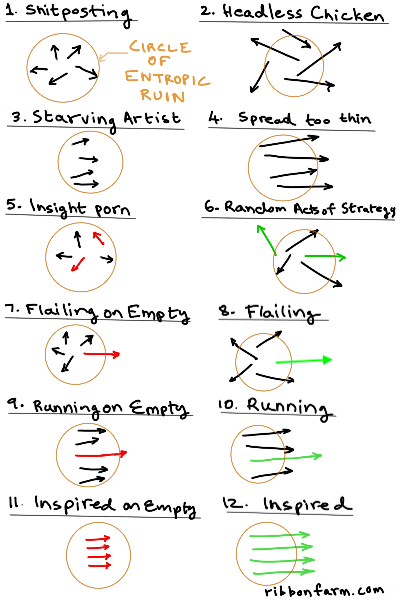 1. Shitposting
2. Headless Chicken
CIRCLE
OF
ENTROPIC
RUIN
3. Starving Artist
4. Spread too thin
5. Insight porn
6. Random Acts of Strategy
7. Flailing on Empty
8. Flailing
9. Running on Empty
10. Running
11. Inspired on Empty
12. Inspired
ribbonfarm.com